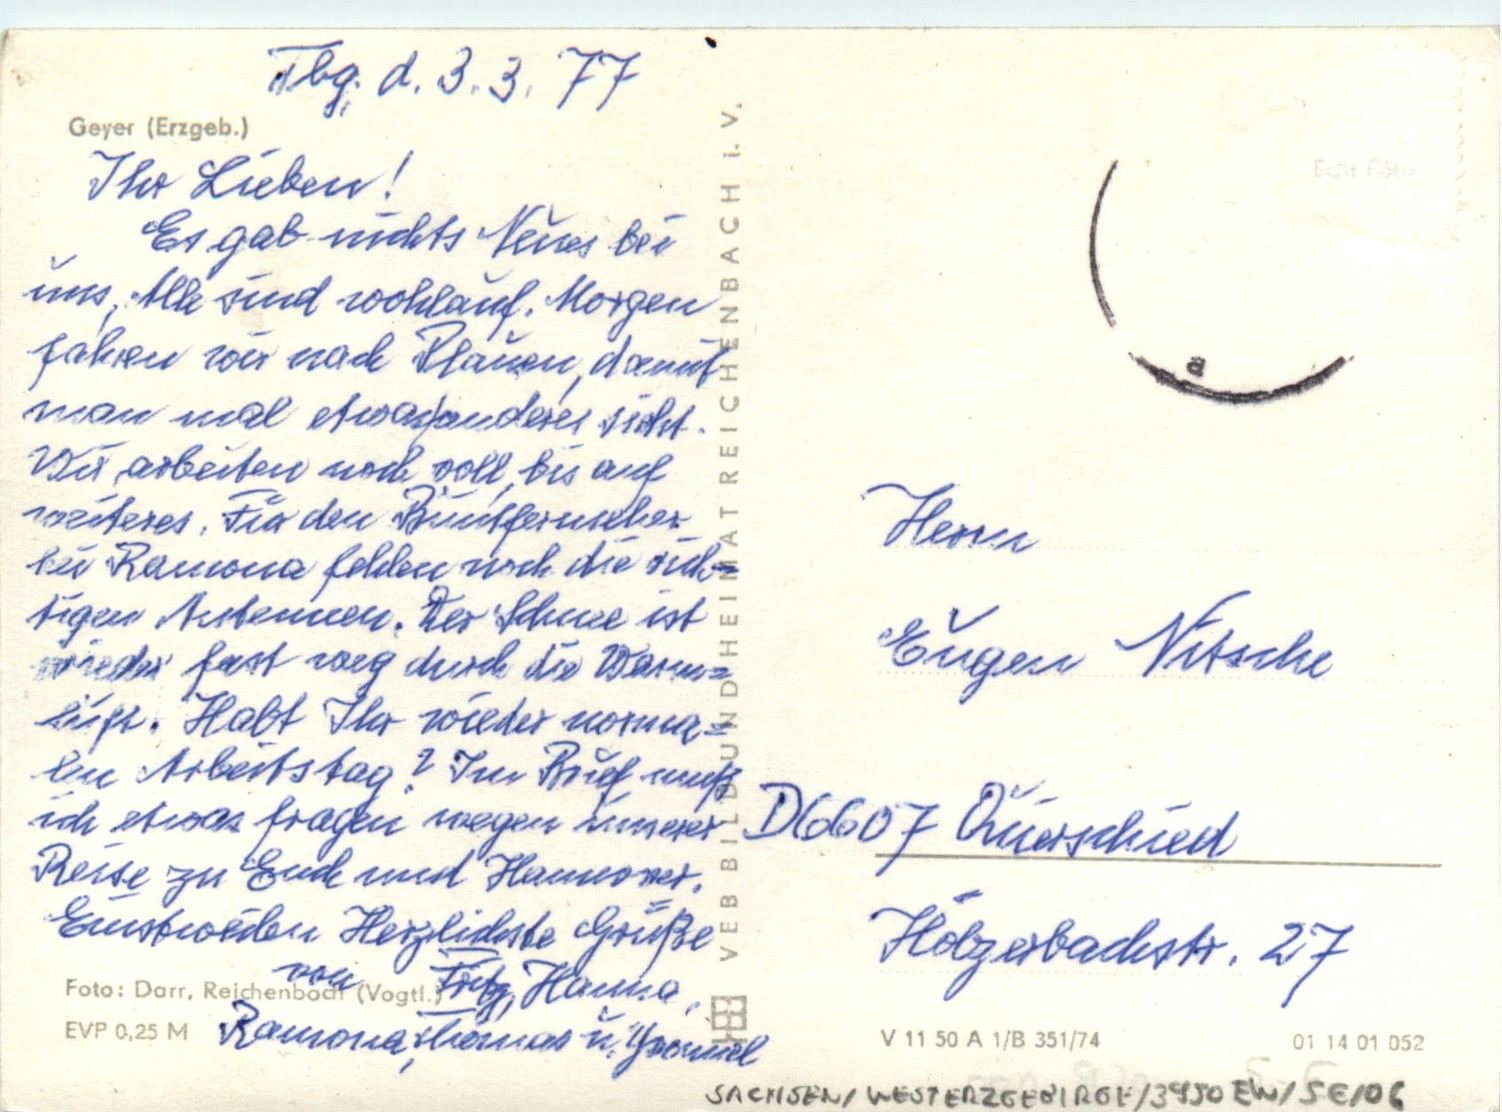 Tbg. d. 3.3.77
Geyer (Erzgeb.)
Ihr Lieben!
Es gab nichts Neues bei
uns, Alle sind wohlauf. Morgen
fahren wir nach Plauen, damit
man mal etwas anderes sieht.
Wir arbeiten noch voll, bis auf
weiteres. Für den Buntfernseher
bei Ramona fehlen noch die rich=
tigen Antennen. Der Schnee ist
wieder fast weg durch die Warm=
luft. Habt Ihr wieder norma=
len Arbeitstag? Im Brief muß
ich etwas fragen wegen unserer
Reise zu Euch und Hannover.
Einstweilen Herzlichste Grüße
von Fritz, Hanna,
Ramona, Thomas u. Yvonnel
Foto: Darr, Reichenbach (Vogtl.)
EVP 0,25 M
VEB BILD UND HEIMAT REICHENBACH i. V.
Echt Foto
a
Herrn
Eugen Nitsche
D6607 Quierschied
Holzerbachstr. 27
V 11 50 A 1/B 351/74
01 14 01 052
SACHSEN/WESTERZGEBIRGE/3950 EW/SE/06